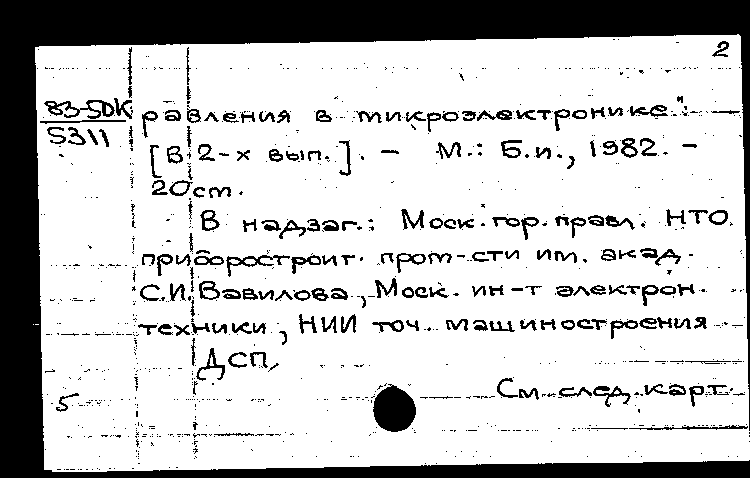 2
83-5DK равления в микроэлектронике":
5311 [В 2-х вып.]. - М.: Б.и., 1982. -
20 см.
В надзаг.: Моск. гор. правл. НТО
приборостроит. пром-сти им. акад.
С.И. Вавилова, Моск. ин-т электрон.
техники, НИИ точ. машиностроения
ДСП,
5 См. след. карт.